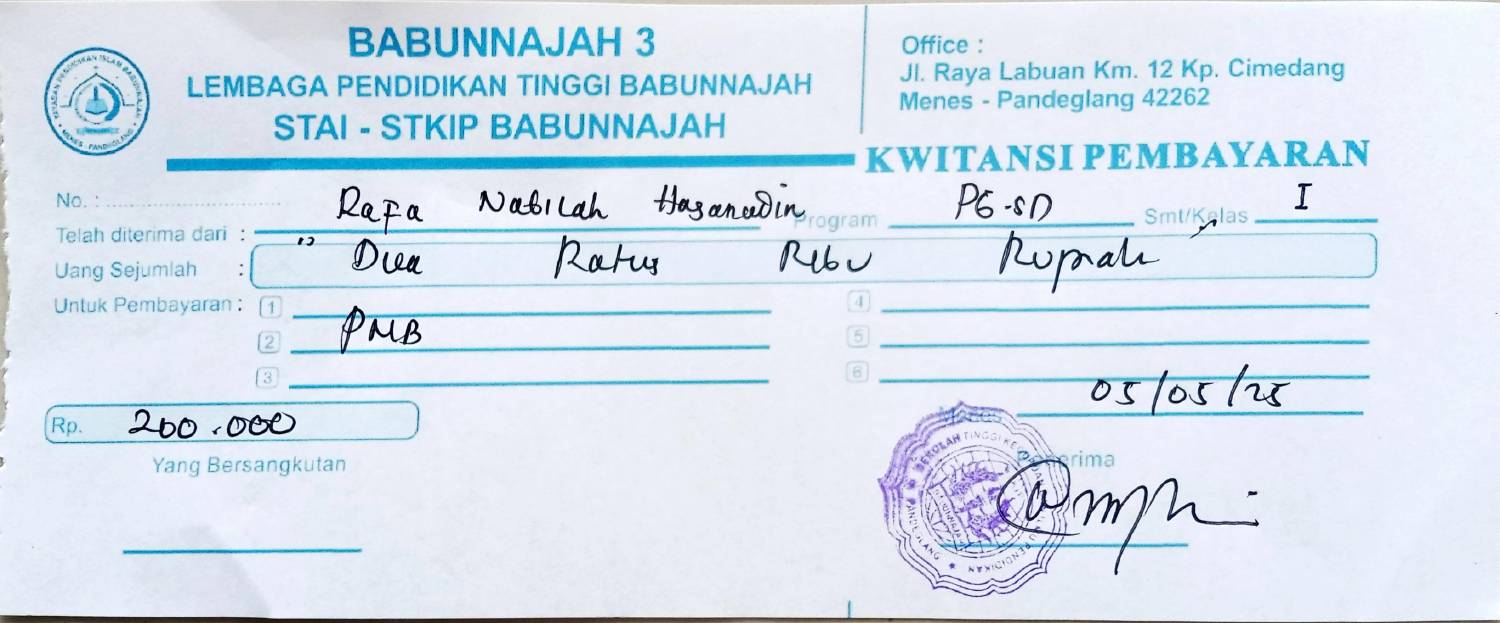 YAYASAN PENDIDIKAN ISLAM BABUNNAJAH
MENES - PANDEGLANG
BABUNNAJAH 3
LEMBAGA PENDIDIKAN TINGGI BABUNNAJAH
STAI - STKIP BABUNNAJAH
Office :
Jl. Raya Labuan Km. 12 Kp. Cimedang
Menes - Pandeglang 42262
KWITANSI PEMBAYARAN
No. :
Telah diterima dari : Rafa Nabilah Hasanudin Program PG-SD Smt/Kelas I
Uang Sejumlah : " Dua Ratus Ribu Rupiah "
Untuk Pembayaran : 1 4
2 PMB 5
3 6
Menes 05/05/25
Rp. 200.000
Yang Bersangkutan
Penerima
SEKOLAH TINGGI KEGURUAN ILMU PENDIDIKAN
PANDEGLANG